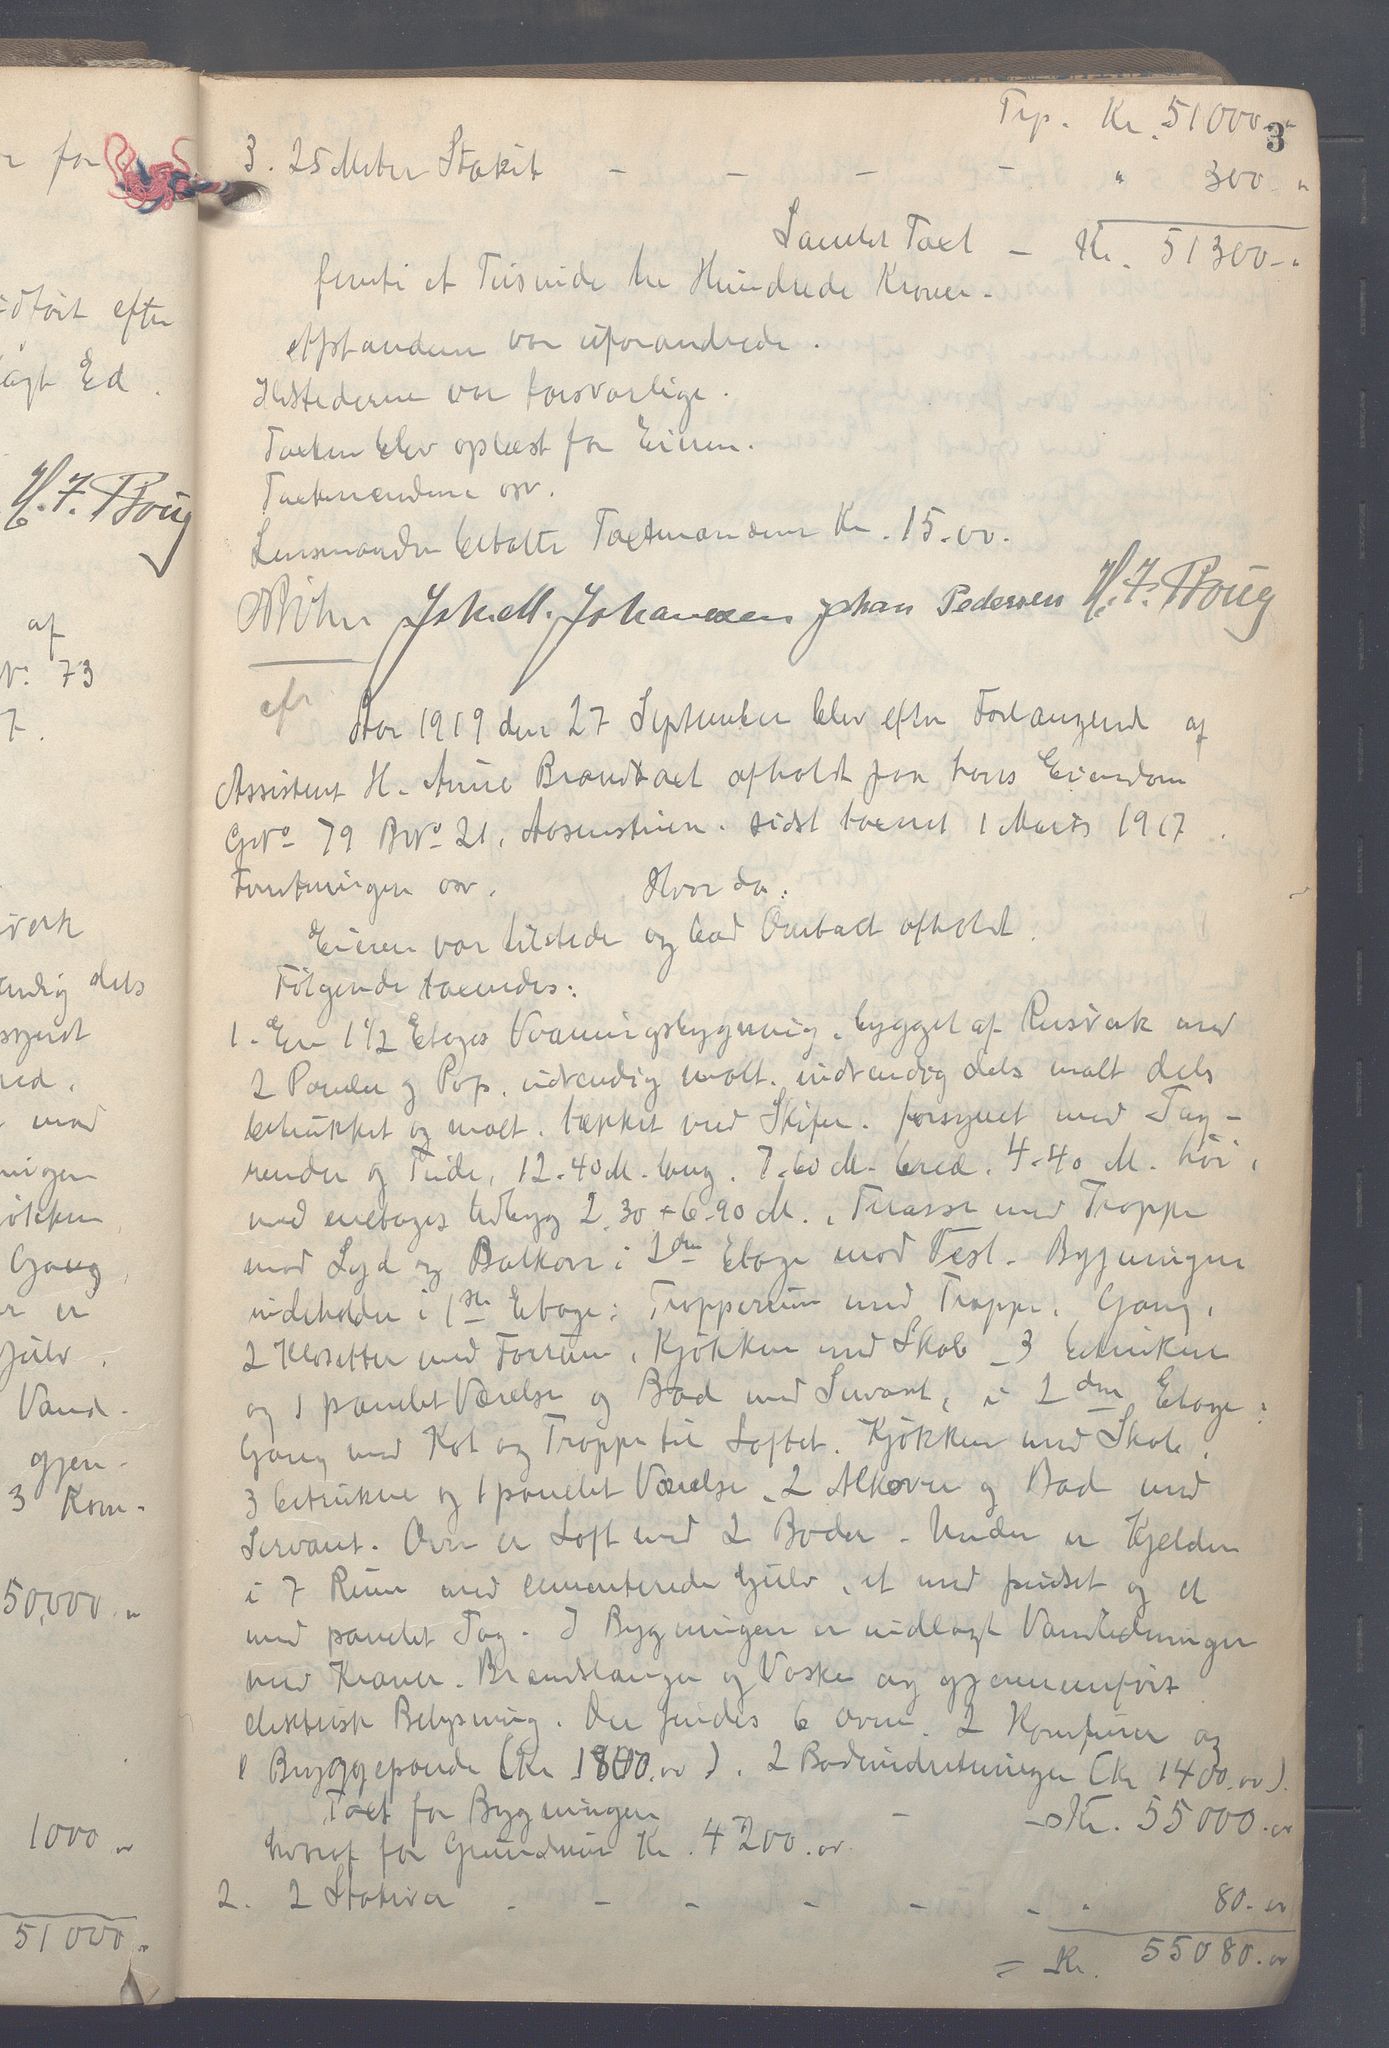 Trp. Kr. 51000.-
3
3. 25 Meter Stakit - - - - " 300.-
Samlet Taxt - Kr. 51300.-
femti et Tusinde tre Hundrede Kroner.
Afstandene var uforandrede.
Ildstederne var forsvarlige.
Taxten blev oplæst for Eieren.
Taxtmændene osv.
Lensmanden betalte Taxtmændene Kr. 15.00.
Joh. M. Johannessen Johan Pedersen H. F. Boug
Aar 1919 den 27 September blev efter Forlangende af
Assistent H. Brandtaxt afholdt paa hans Eiendom
GNo 79 BNo 21, sidst taxeret 1 Marts 1917.
Forretningen osv. Hvor da:
Eieren var tilstede og bad Omtaxt afholdt.
Følgende taxeredes:
1. En 1 1/2 Etages Vaaningsbygning, bygget af Reisverk med
2 Paneler og Pap, udvendig malt, indvendig dels malt dels
betrukket og malt, tækket med Skifer, forsynet med Tag-
render og Nedløb, 12.40 M. lang, 7.60 M. bred, 4.40 M. høi,
med enetages Udbyg 2.30 + 6.90 M., Terasse med Trappe
mod Syd og Balkon i 2den Etage mod Vest. Bygningen
indeholder i 1ste Etage: Trapperum med Trappe, Gang,
2 Klosetter med Forrum, Kjøkken med Skab, 3 betrukne
og 1 panelet Værelse og Bad med Servant, i 2den Etage:
Gang med Kot og Trappe til Loftet, Kjøkken med Skab,
3 betrukne og 1 panelet Værelse, 2 Alkover og Bad med
Servant. Over er Loft med 2 Boder. Under er Kjelder
i 7 Rum med cementerede Gulv, et med pudset og et
med panelet Tag. I Bygningen er indlagt Vandledninger
med Kraner, Brandslanger og Vaske og gjennemført
elektrisk Belysning. Der findes 6 Ovne, 2 Komfurer og
1 Bryggepande (Kr 1800.00), 2 Badeindretninger (Kr 1400.00).
Taxt for Bygningen - - Kr. 55000.00
hvoraf for Grundmur Kr. 4200.00
2. 2 Stakiter - - - - - - " 80.00
= Kr. 55080.00